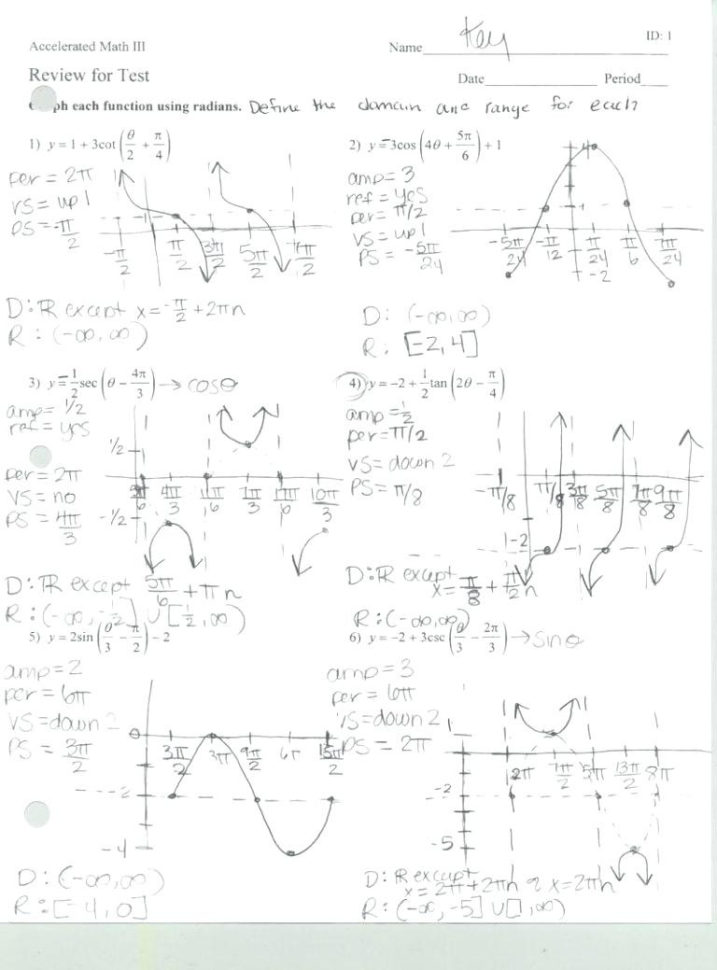 ID: 1
Accelerated Math III
Name Key
Review for Test
Date Period
ph each function using radians. Define the domain and range for each
1) y = 1 + 3cot(θ/2 + π/4)
per = 2π
VS = up 1
PS = -π/2
-π/2 π/2 3π/2 5π/2 7π/2
D: ℝ except x = -π/2 + 2πn
R: (-∞, ∞)
2) y = -3cos(4θ + 5π/6) + 1
amp = 3
ref = yes
per = π/2
VS = up 1
PS = -5π/24
4
1
-5π/24 -π/12 π/24 π/6 7π/24
-2
D: (-∞, ∞)
R: [-2, 4]
3) y = -1/2 sec(θ - 4π/3) → cosθ
amp = 1/2
ref = yes
per = 2π
VS = no
PS = 4π/3
1/2
4π/3 11π/6 7π/3 17π/6 10π/3
-1/2
D: ℝ except 5π/6 + πn
R: (-∞, -1/2] ∪ [1/2, ∞)
4) y = -2 + 1/2 tan(2θ - π/4)
amp = 1/2
per = π/2
VS = down 2
PS = π/8
-π/8 π/8 3π/8 5π/8 7π/8 9π/8
-2
D: ℝ except
x = π/8 + π/2 n
R: (-∞, ∞)
5) y = 2sin(θ/3 - π/2) - 2
amp = 2
per = 6π
VS = down 2
PS = 3π/2
0
3π/2 3π 9π/2 6π 15π/2
-2
-4
D: (-∞, ∞)
R: [-4, 0]
6) y = -2 + 3csc(θ/3 - 2π/3) → sinθ
amp = 3
per = 6π
VS = down 2
PS = 2π
1
2π 7π/2 5π 13π/2 8π
-2
-5
D: ℝ except
x = 2π + 2πn x = 2πn
R: (-∞, -5] ∪ [1, ∞)